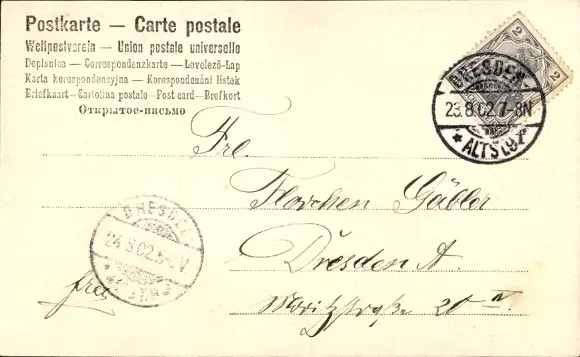 Postkarte — Carte postale
Weltpostverein — Union postale universelle
Dopisnice — Correspondenzkarte — Levelező-Lap
Karta korespondencyjna — Korespondenční lístek
Briefkaart — Cartolina postale Post card — Brefkort
Открытое-письмо
2 2
DRESDEN
23.8.02.7-8N
* ALTST.
Frl.
Florchen Gäbler
DRESDEN
24.8.02
Dresden A.
frei
Moritzstraße 20 IV.